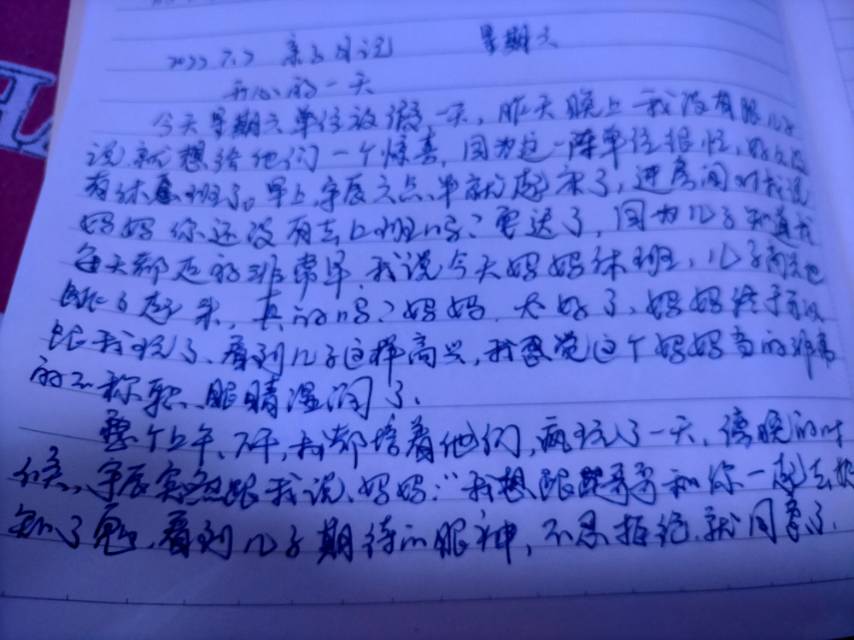 2022 7.2 亲子日记 星期六
开心的一天
今天星期六单位放假一天,昨天晚上我没有跟儿子
说,就想给他们一个惊喜,因为这一阵单位很忙,好久没
有休息班了。早上,宇辰六点、早就起来了,进房间对我说
妈妈你还没有去上班吗?要迟了,因为儿子知道我
每天都走的非常早,我说今天妈妈休班,儿子高兴地
跳了起来,真的吗?妈妈,太好了,妈妈终于可以
跟我玩了、看到儿子这样高兴,我感觉这个妈妈当的非常
的不称职、眼睛湿润了、
整个上午、下午,我都陪着他们,疯玩了一天,傍晚的时
候,宇辰突然跟我说、妈妈:“我想跟哥哥和你一起去
知了龟,看到儿子期待的眼神,不忍拒绝,就同意了、